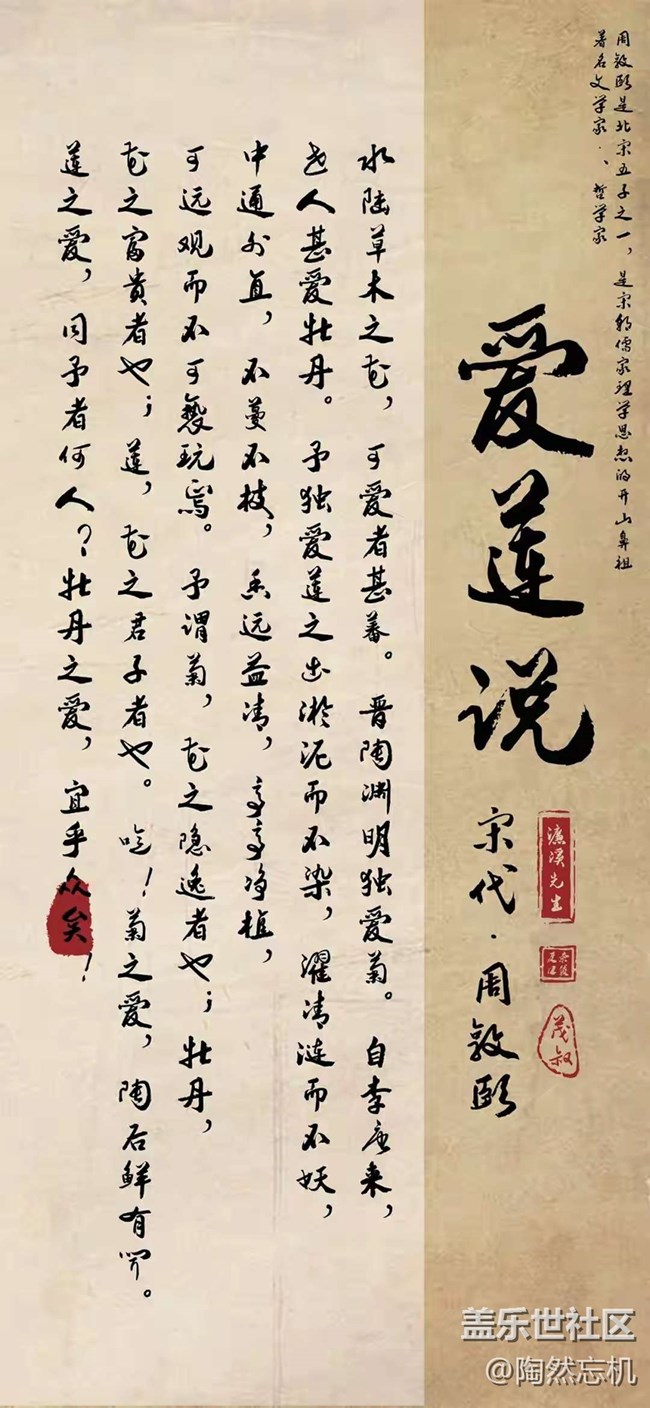 周敦颐是北宋五子之一，是宋朝儒家理学思想的开山鼻祖
著名文学家、哲学家
爱莲说
宋代·周敦颐
濂溪先生
茂叔
水陆草木之花，可爱者甚蕃。晋陶渊明独爱菊。自李唐来，
世人甚爱牡丹。予独爱莲之出淤泥而不染，濯清涟而不妖，
中通外直，不蔓不枝，香远益清，亭亭净植，
可远观而不可亵玩焉。予谓菊，花之隐逸者也；牡丹，
花之富贵者也；莲，花之君子者也。噫！菊之爱，陶后鲜有闻。
莲之爱，同予者何人？牡丹之爱，宜乎众矣！
盖乐世社区
@陶然忘机